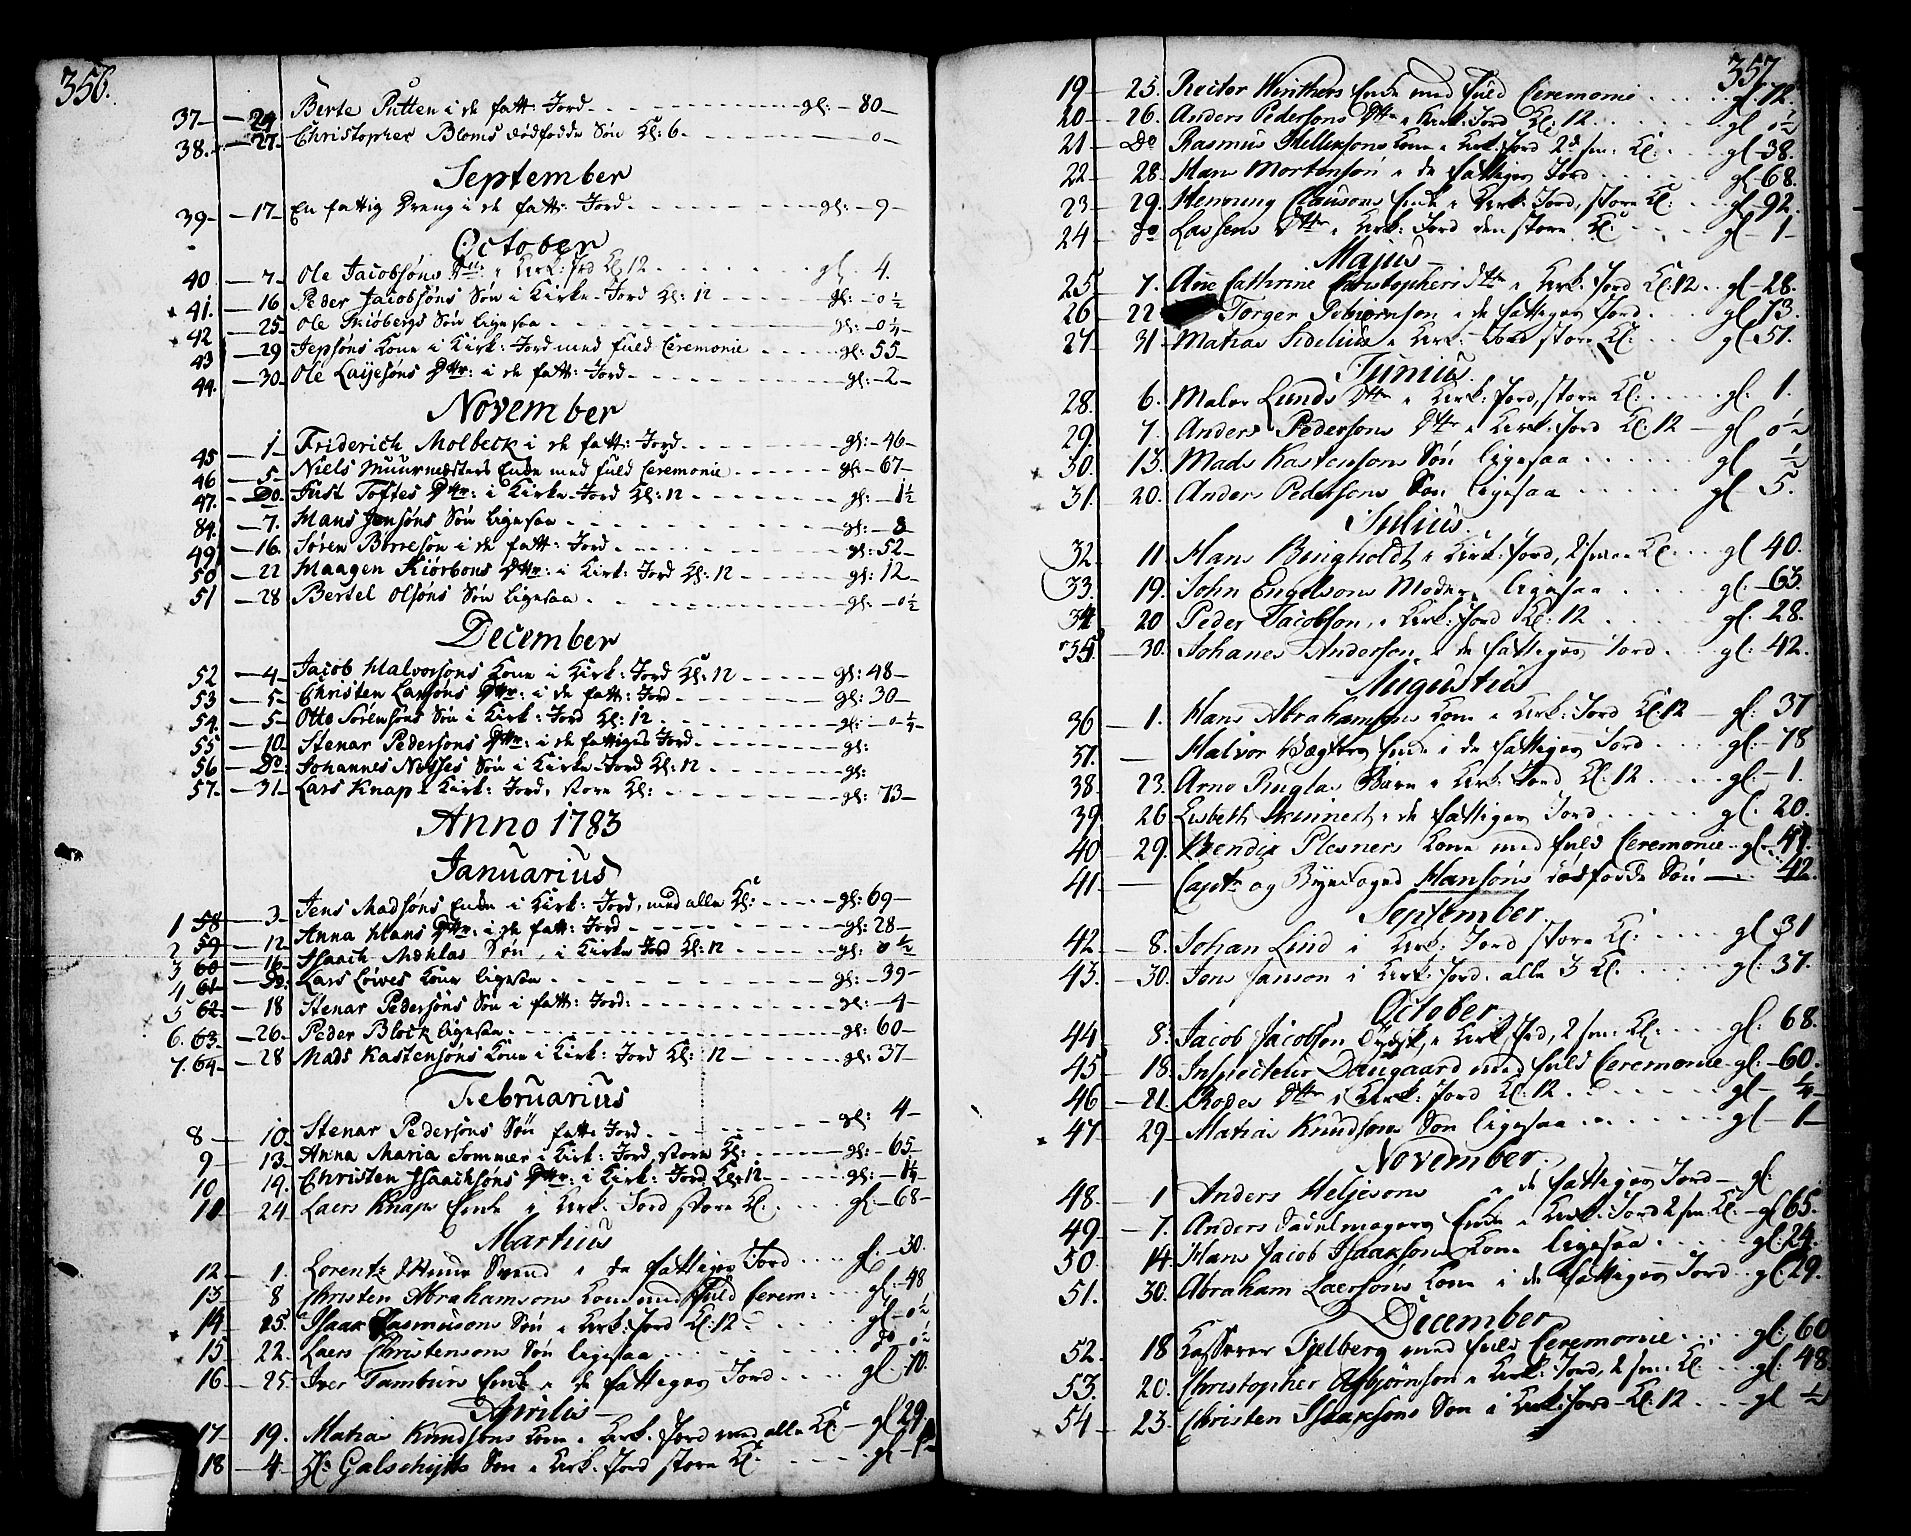 356.
37 — 24 Berte Putten i de fatt: Jord — gl: 80 —
38. — 27. Christopher Bloms dødfødde Søn Kl: 6 — 0 —
September
39 — 17 — En fattig Dreng i de fatt: Jord — gl: 9 —
October
40 — 7 — Ole Jacobsøns Dtt: i Kirk: Jord Kl: 12 gl. 4.
41. — 16 Peder Jacobsøns Søn i Kirke-Jord Kl: 12 — gl: 0 ½
42 — 25 — Ole Skiöbergs Søn ligesaa — gl: 0 ¼
43 — 29 Jepsøns Kone i Kirk: Jord med fuld Ceremonie — gl: 55 —
44. — 30 — Ole Laijesøns Dttr: i de fatt: Jord — gl: 2 —
November
45 — 1 Friderich Molbeck i de fatt: Jord — gl: 46
46 — 5 — Niels Muurmesters Enke med fuld Ceremonie — gl: 67 —
47. — Do Just Toftes Dttr: i Kirke-Jord Kl: 12 — gl: 1½
84. — 7. Hans Jensøns Søn ligesaa — gl: 8
49 — 16. Søren Börresøn i de fatt: Jord — gl: 52 —
50 — 22 Maagen Kiörbons Dttr: i Kirk: Jord Kl: 12 gl: 12 —
51 — 28 Bertel Olsøns Søn ligesaa — gl: 0 ½
December
52 — 4 — Jacob Halvorsøns Kone i Kirk: Jord Kl: 12 gl: 48 —
53 — 5 — Christen Larsøns Dttr: i de fatt: Jord gl: 30 —
54. — 5 — Otto Sørensøns Søn i Kirk: Jord Kl: 12 gl: 0 ¼
55 — 10. Stenar Pedersøns Dttr: i de fattiges Jord gl:
56 — Do: Johannes Nysses Søn i Kirke-Jord Kl: 12 gl:
57. — 31 — Lars Knap i Kirk: Jord, store Kl: gl: 73 —
Anno 1783
Januarius
1 58 — 3 — Jens Madsøns Enke i Kirk: Jord, med alle Kl: gl: 69 —
2 59 — 12 Anna Hans Dttr: i de fatt: Jord gl: 28 —
3 60 — 16 Isaach Mæhlas Søn, i Kirke Jord Kl: 12 gl: 0 ½
4 61 — Do. Lars Löwes Kone ligesaa gl: 39 —
5 62 — 18 Stenar Pedersøns Søn i fatt: Jord: gl: 4
6. 63 — 26. Peder Block ligesaa gl: 60 —
7. 64 — 28 Mads Kastensøns Kone i Kirk: Jord Kl: 12 gl: 37 —
Februarius
8 — 10 Stenar Pedersøns Søn fatt: Jord gl: 4 —
9 — 13 — Anna Maria Sommer i Kirk: Jord store Kl: gl: 65 —
10 19. Christen Isaachsøns Dttr: i Kirk: Jord Kl: 12 gl: 1¼
11 — 24 Laers Knaps Enke i Kirk: Jord store Kl. gl. 68 —
Martius
12 — 1. Lorentz Svend i de fattiges Jord gl. 30.
13 — 8 Christen Abrahamsons Kone med fuld Cerem: gl. 48
14 — 15. Isaak Rasmusons Søn i Kirk: Jord Kl: 12 gl 0 ½
15 — 22. Laers Christensons Søn ligesaa do 0 ½
16 — 25. Iver Tamburs Enke i de fattiges Jord gl 10.
Aprilis
17 — 19. Matias Knudsøns Kone i Kirk: Jord med alle Kl gl 29.
18 — 4. Galschiøtts Søn i Kirk: Jord store Kl gl
357
19 — 25. Rector Winthers Enke med fuld Ceremonie gl. 72.
20 — 26. Anders Pedersons Dttr i Kirk: Jord Kl: 12 gl 0 ½
21 — Do Rasmus Hellesons Kone i Kirk: Jord 2de sm: Kl: gl. 38.
22 — 28. Hans Mortenson i de fattiges Jord gl. 68.
23 — 29. Henning Clausons Enke i Kirk: Jord, store Kl: gl. 92.
24 — do Lassens Dttr i Kirk: Jord den store Kl: gl. 1 —
Majus
25 — 7. Ane Cathrine Christophers Dttr i Kirk: Jord Kl: 12 gl 28.
26 — 22 Torger Tobiornson i de fattiges Jord gl 73.
27 — 31 — Matias Sidelius i Kirk: Jord store Kl: gl 51.
Junius
28. 6. Malvr Lunds Dttr i Kirk: Jord, store Kl: gl. 1.
29. 7. Anders Pedersons Dttr i Kirk: Jord Kl: 12 — gl 0 ½
30. 13. Mads Kastensons Søn ligesaa gl ½
31. 20. Anders Pedersons Søn ligesaa gl. 5.
Julius
32. 11. Hans Bingholdt i Kirk: Jord, 2 smaa Kl: gl 40.
33. 19. John Engelsons Moder, ligesaa gl. 63.
34 20 Peder Jacobson, i Kirk: Jord Kl: 12 gl. 28.
35 — 30. Johanes Anderson, i de fattiges Jord gl. 42.
Augustus
36 — 1. Hans Abrahamsons Kone i Kirk: Jord Kl: 12 — gl. 37
37. — Halvor Enke i de fattiges Jord gl: 78
38 23. Arne Pinglas Barn i Kirk: Jord Kl: 12 gl: 1.
39 26 Lisbeth Skinnert i de fattiges Jord gl. 20.
40 — 29. Bendix Plesners Kone med fuld Ceremonie gl. 47.
41 — Captn og Byefoged Hansøns dödfödde Søn — 42.
September.
42 — 8. Johan Lind i Kirk: Jord store Kl: gl 31
43. — 30. Jens Janson i Kirk: Jord. alle 3 Kl. gl. 37.
October.
44 — 8. Jacob Jacobson i Kirk: Jord, 2 sm: Kl: gl. 68.
45 — 18. Inspecteur Daugaard med fuld Ceremonie gl. 60.
46 — 21. Rodes Dttr i Kirk: Jord Kl: 12. gl — ¼
47 29 — Matias Knudsøns Søn ligesaa gl — 1 —
November.
48 — 1 Anders Heljesons i de fattiges Jord — gl.
49 — 7. Anders Sadelmagers Enke i Kirk: Jord 2 sm: Kl. gl 65.
50 14. Hans Jacob Isaaksøns Kone ligesaa gl. 24.
51. 30. Abraham Laersøns Kone i de fattiges Jord gl 29.
December
52. 18 Kasserer Sselberg med fuld Ceremonie gl: 60
53. 20. Christopher Asbjørnson i Kirk: Jord, 2 sm: Kl. gl: 48.
54 — 23. Christen Isaaksøns Søn i Kirk: Jord Kl: 12 gl ½